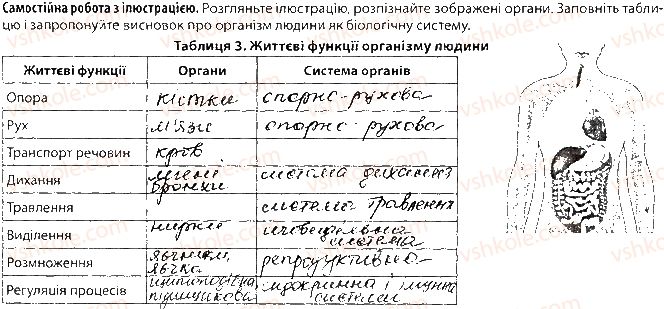 Самостійна робота з ілюстрацією. Розгляньте ілюстрацію, розпізнайте зображені органи. Заповніть табли-
цю і запропонуйте висновок про організм людини як біологічну систему.
Таблиця 3. Життєві функції організму людини
Життєві функції Органи Система органів
Опора кістки опорно-рухова
Рух м'язи опорно-рухова
Транспорт речовин кров
Дихання легені бронхи система дихання
Травлення система травлення
Виділення нирки система
Розмноження яєчники, яєчка репродуктивна
Регуляція процесів щитоподібна, підшлункова ендокринна і імунна системи
vshkole.com